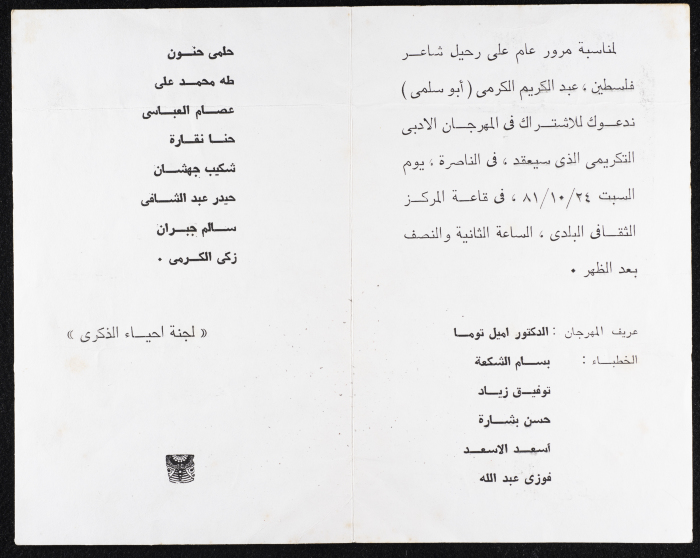 لمناسبة مرور عام على رحيل شاعر
فلسطين ، عبد الكريم الكرمى ( أبو سلمى )
ندعوك للاشتراك فى المهرجان الادبى
التكريمى الذى سيعقد ، فى الناصرة ، يوم
السبت ٨١/١٠/٢٤ ، فى قاعة المركز
الثقافى البلدى ، الساعة الثانية والنصف
بعد الظهر .
عريف المهرجان : الدكتور اميل توما
الخطباء : بسام الشكعة
توفيق زياد
حسن بشارة
أسعد الاسعد
فوزى عبد الله
حلمى حنون
طه محمد على
عصام العباسى
حنا نقارة
شكيب جهشان
حيدر عبد الشافى
سالم جبران
زكى الكرمى .
« لجنة احياء الذكرى »